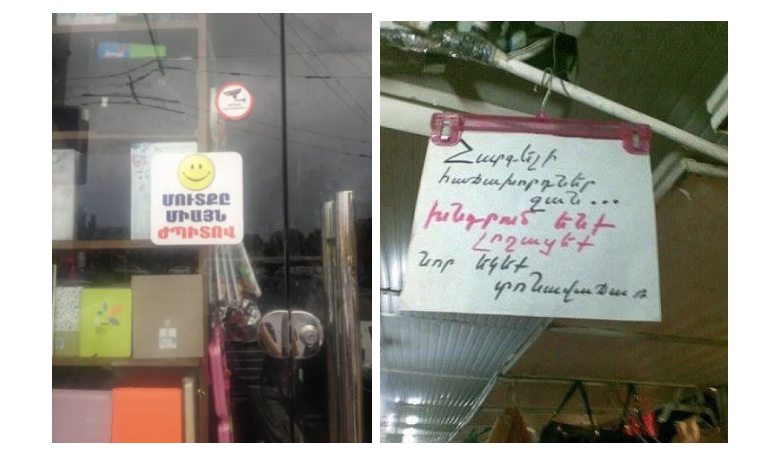 ՄՈՒՏՔԸ
ՄԻԱՅՆ
ԺՊԻՏՈՎ
Հարգելի
հաճախորդներ
ջան...
խնդրում ենք
լողացեք
նոր եկեք
տոնավաճառ